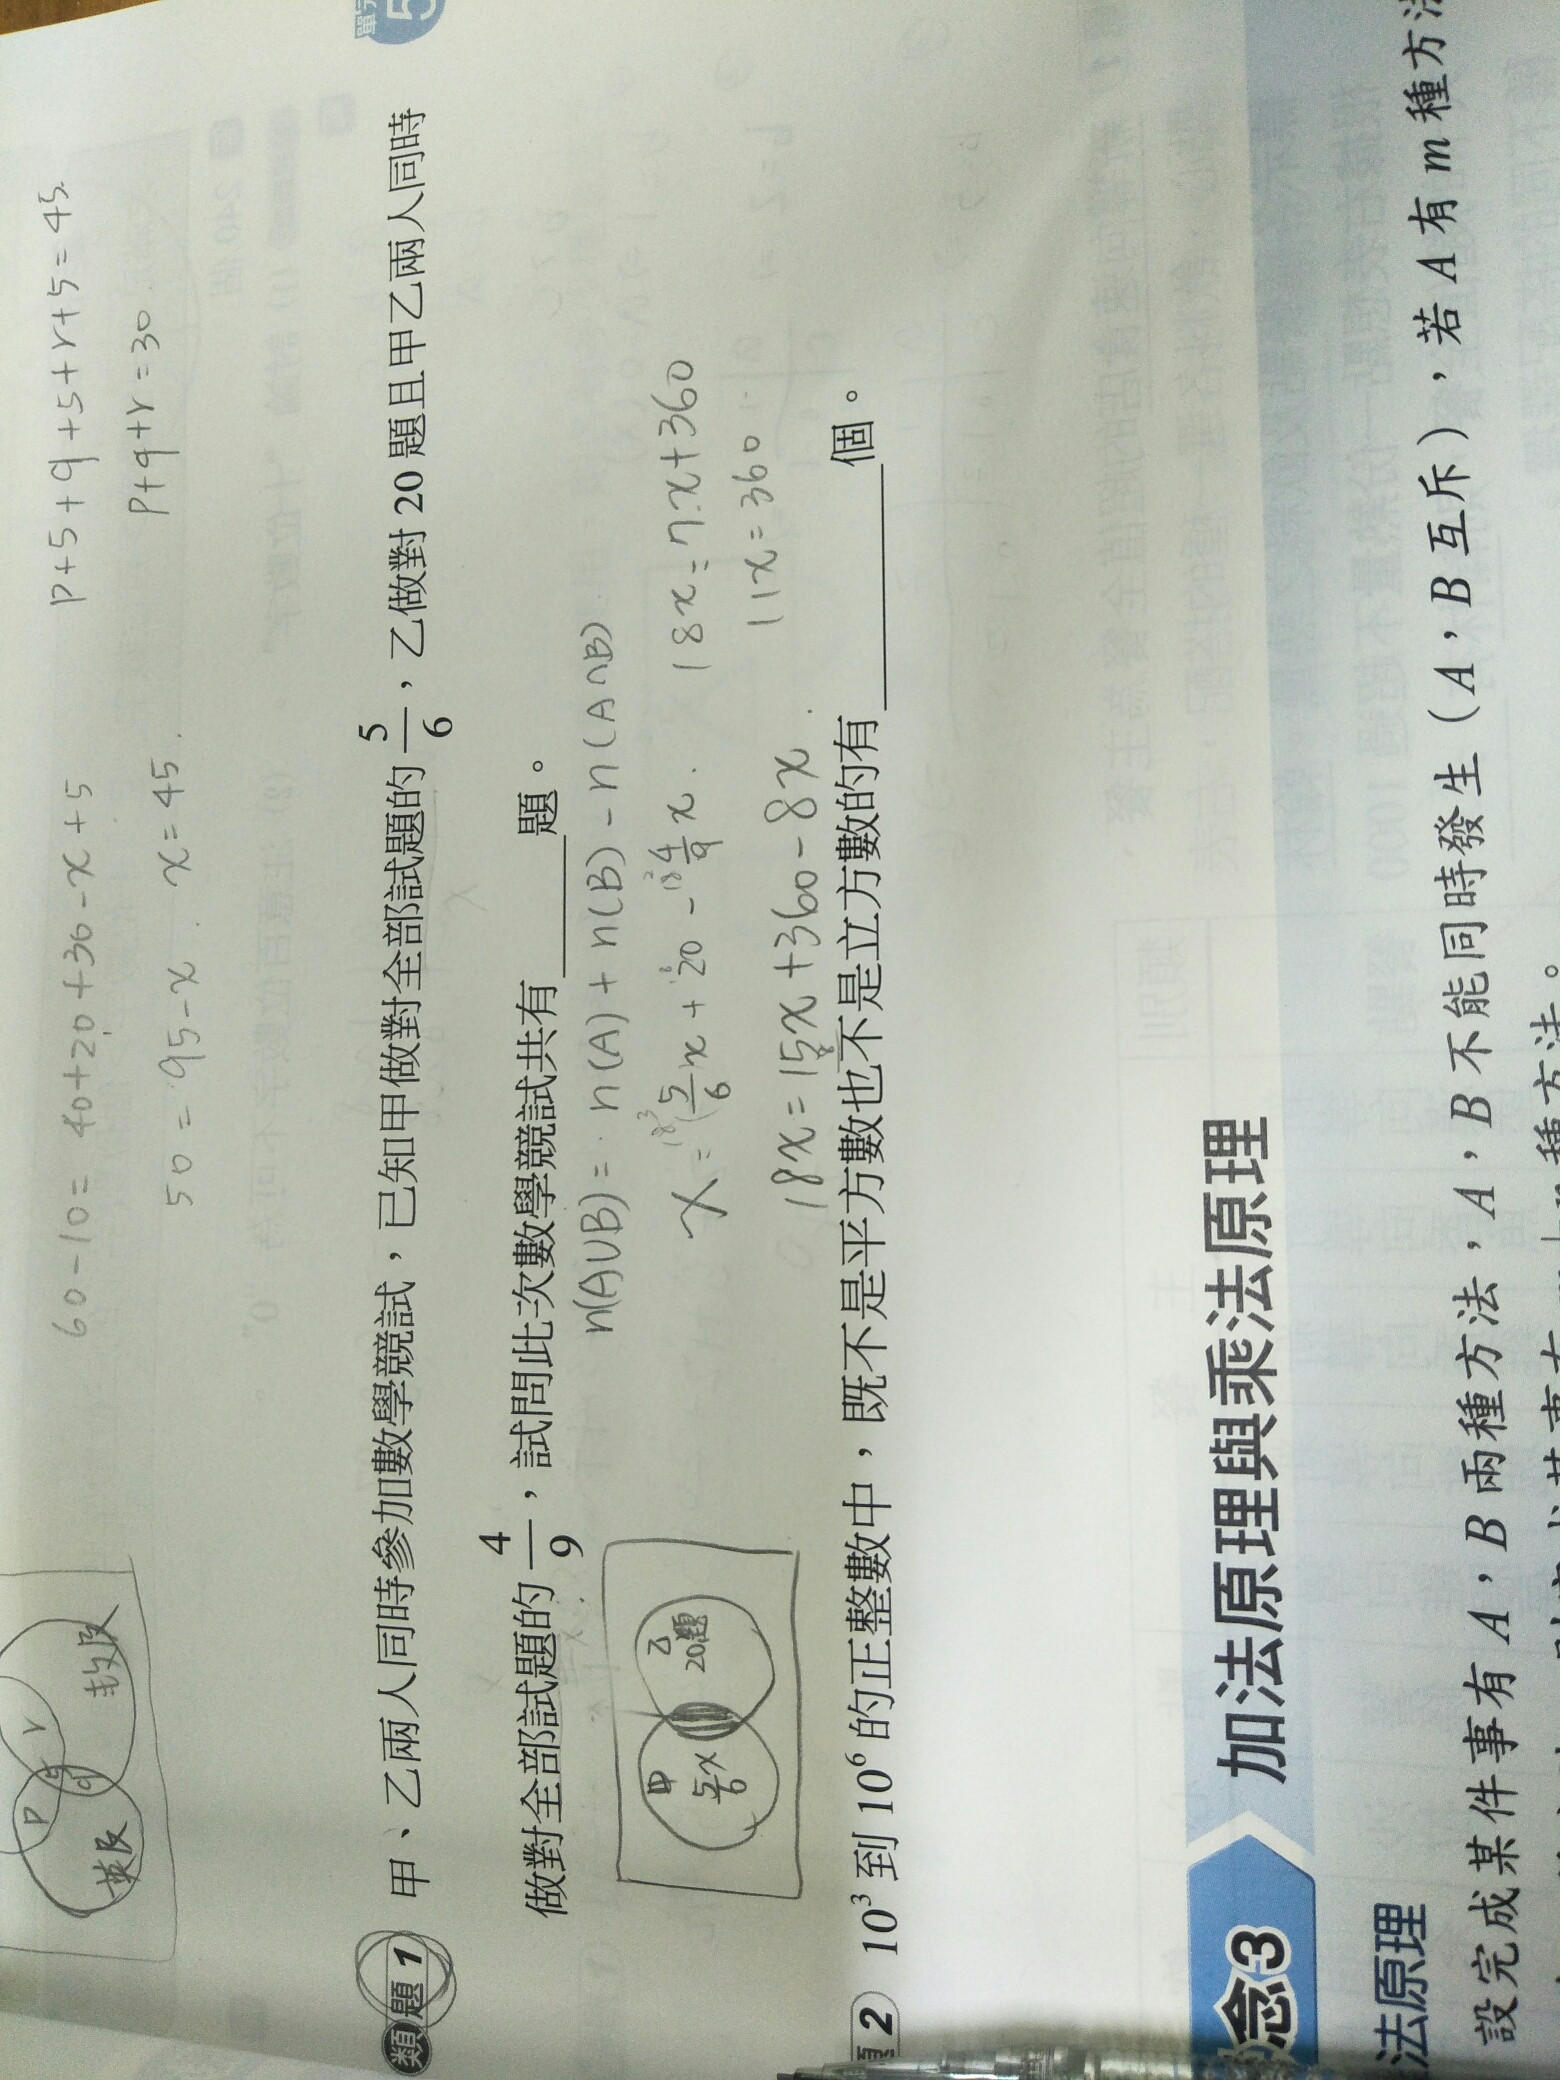 60-10=40+20+30-x+5
50=95-x. x=45.
p+5+q+5+r+5=45.
p+q+r=30.
英及
數及
p
r
5
q
單元
5
類題1 甲、乙兩人同時參加數學競試，已知甲做對全部試題的5/6，乙做對20題且甲乙兩人同時
做對全部試題的4/9，試問此次數學競試共有______題。
n(A∪B)=n(A)+n(B)-n(A∩B)
x=5/6x+20-4/9x.
18x=15x+360-8x.
18x=7x+360
11x=360
甲
5/6x
乙
20題
2 10³到10⁶的正整數中，既不是平方數也不是立方數的有______個。
念3 加法原理與乘法原理
法原理
設完成某件事有A，B兩種方法，A，B不能同時發生（A，B互斥），若A有m種方法
種方法。